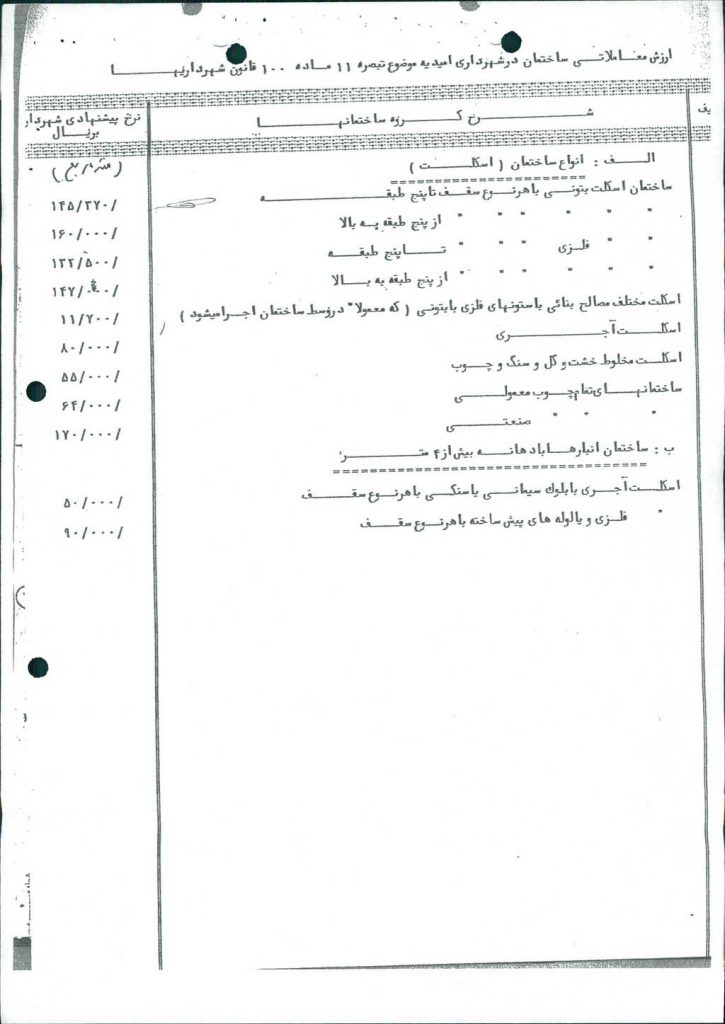 ارزش معاملاتی ساختمان در شهرداری امیدیه موضوع تبصره ۱۱ ماده ۱۰۰ قانون شهرداریها
یف
شرح گروه ساختمانها
نرخ پیشنهادی شهردار
بریال
(متر مربع)
الف : انواع ساختمان ( اسکلت )
ساختمان اسکلت بتونی با هر نوع سقف تا پنج طبقه
۱۴۵/۲۷۰/
" " " " " " از پنج طبقه به بالا
۱۶۰/۰۰۰/
" " فلزی " " " تا پنج طبقه
۱۳۲/۵۰۰/
" " " " " " از پنج طبقه به بالا
۱۴۷/۰۰۰/
اسکلت مختلف مصالح بنائی با ستونهای فلزی یا بتونی ( که معمولا" در وسط ساختمان اجرا میشود )
۱۱/۷۰۰/
اسکلت آجری
۸۰/۰۰۰/
اسکلت مخلوط خشت و گل و سنگ و چوب
۵۵/۰۰۰/
ساختمانهای تمام چوب معمولی
۶۴/۰۰۰/
" " " صنعتی
۱۷۰/۰۰۰/
ب : ساختمان انبارها با دهانه بیش از ۴ متر
اسکلت آجری با بلوک سیمانی یا سنگی با هر نوع سقف
۵۰/۰۰۰/
" فلزی و یا لوله های پیش ساخته با هر نوع سقف
۹۰/۰۰۰/